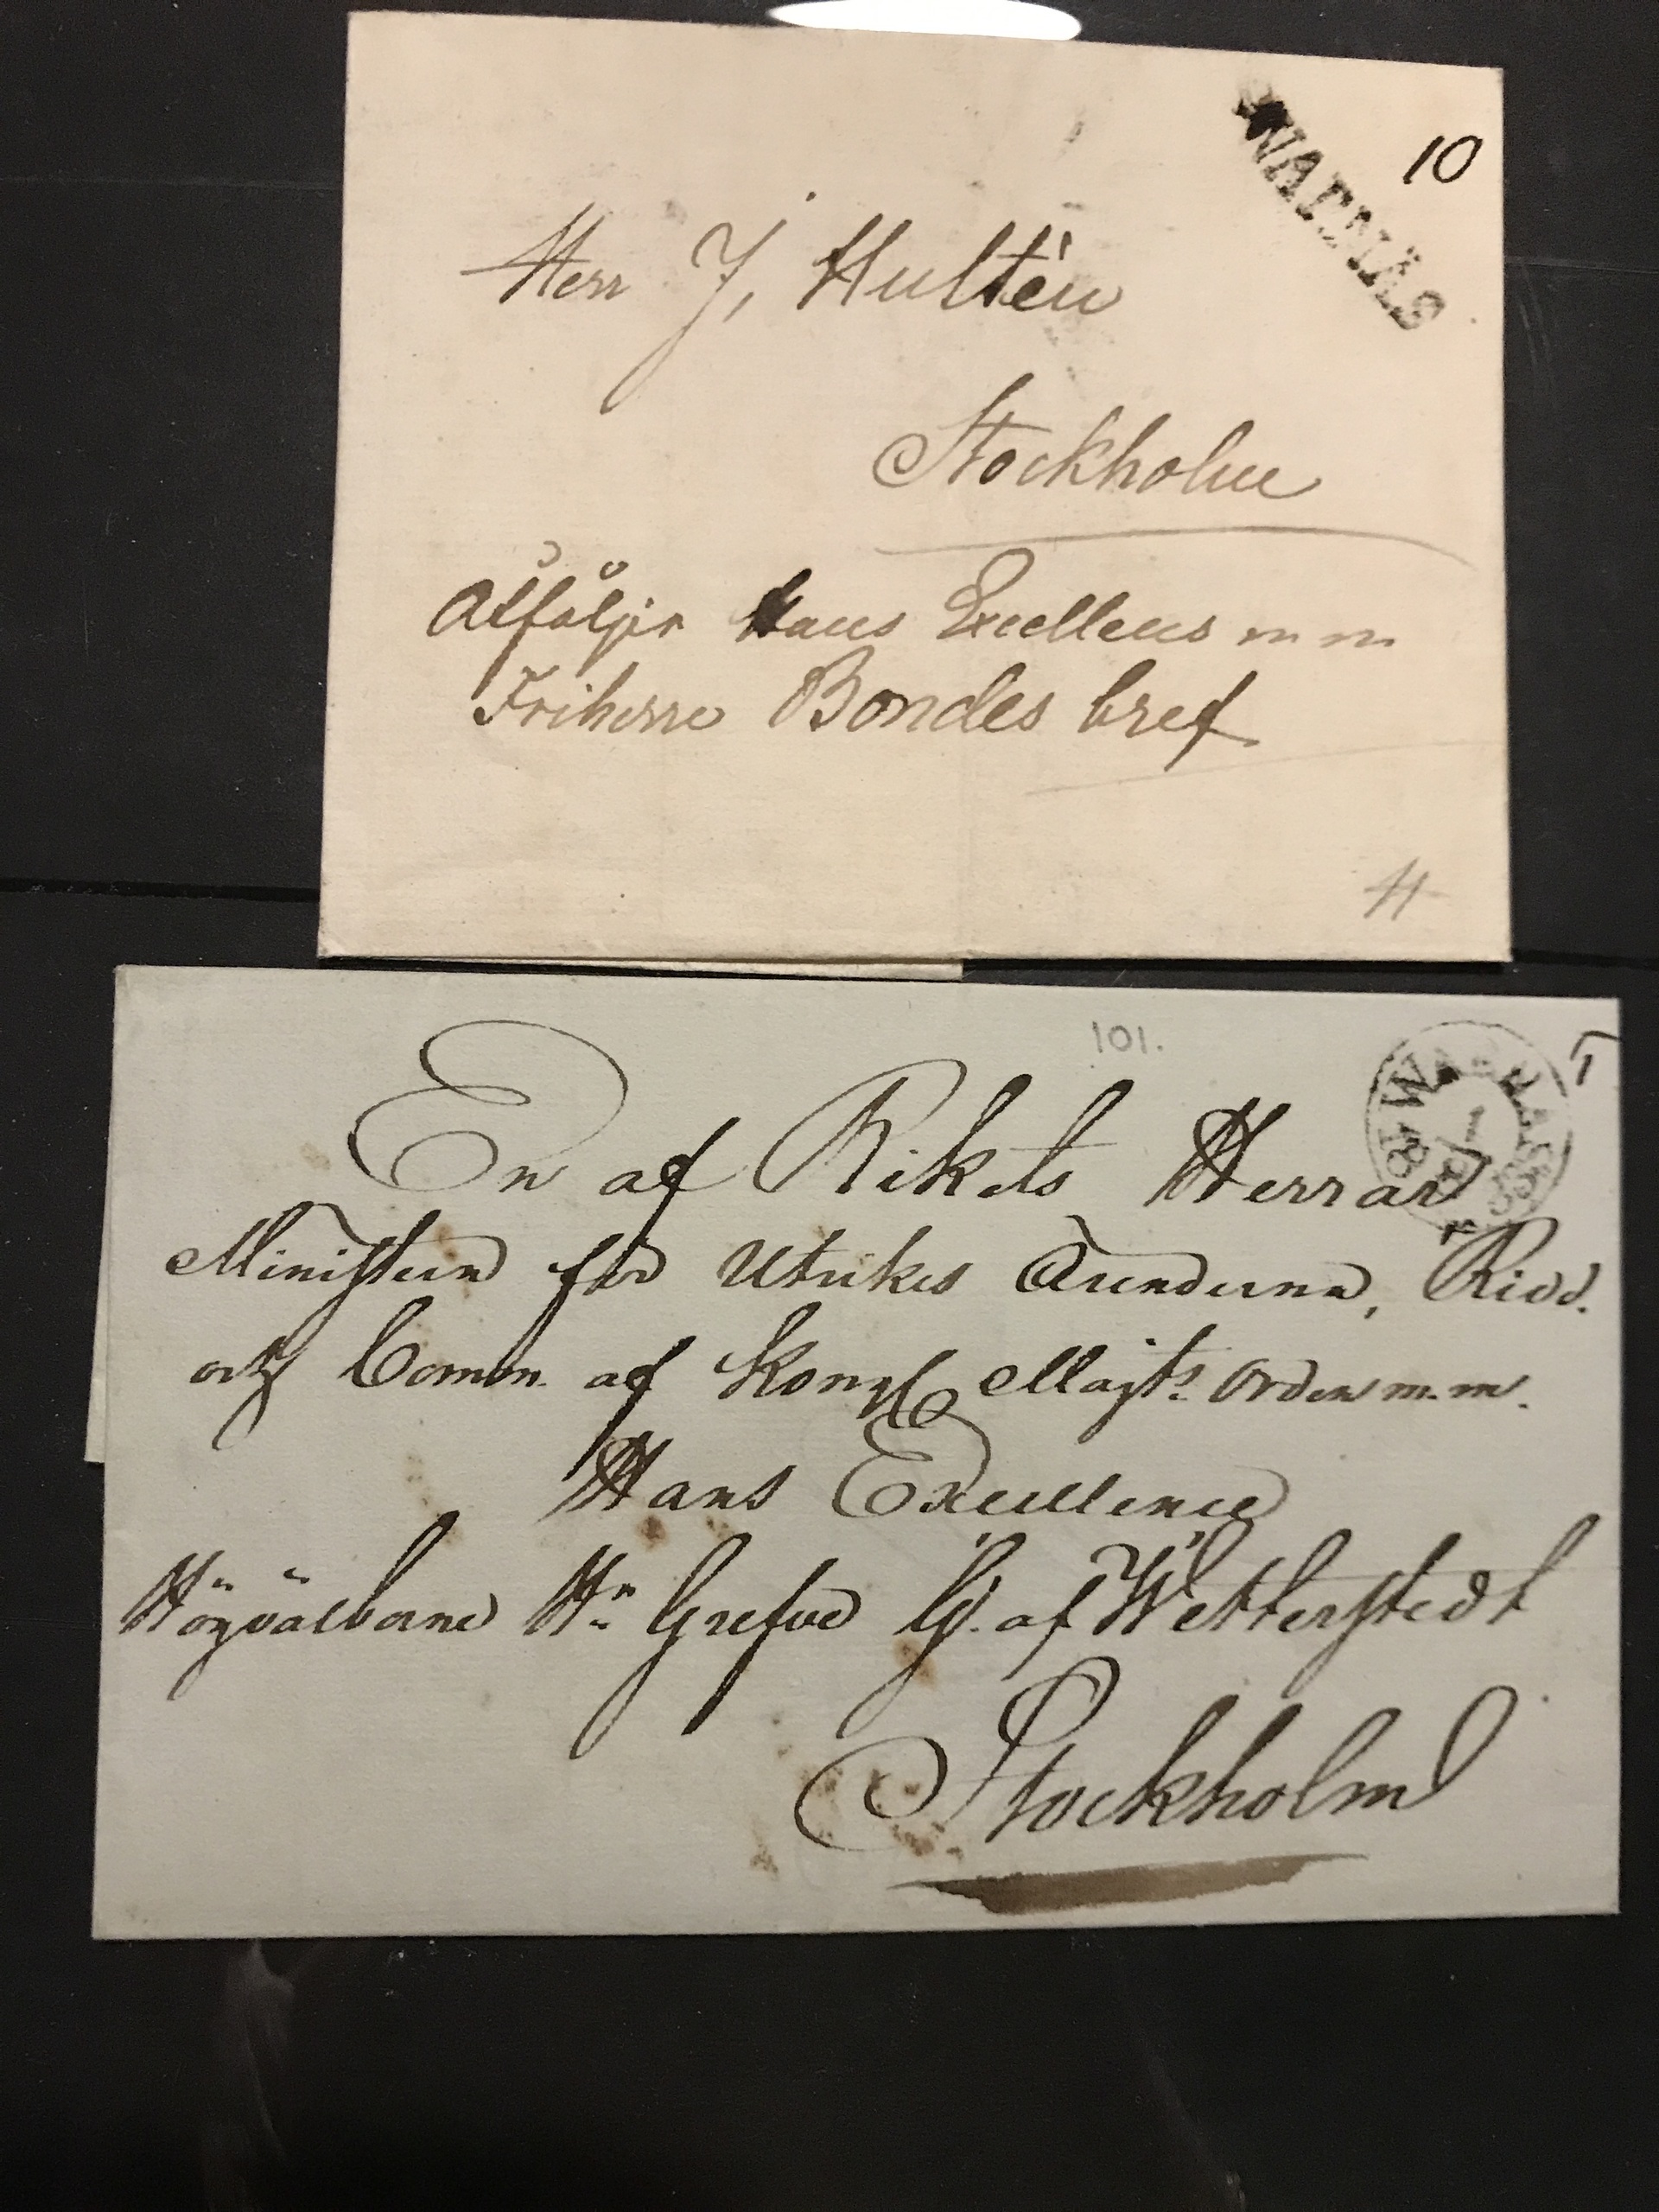 WADNÄS
10
Herr J, Hultén
Stockholm
Åtföljer Hans Excellens m m
Friherre Bondes bref
101.
En af Rikets Herrar
Ministern för Utrikes Ärenderna, Ridd.
och Comm. af Kongl Majts. Orden m.m.
Hans Excellence
Högvälborne Hr Grefve G. af Wetterstedt
Stockholm